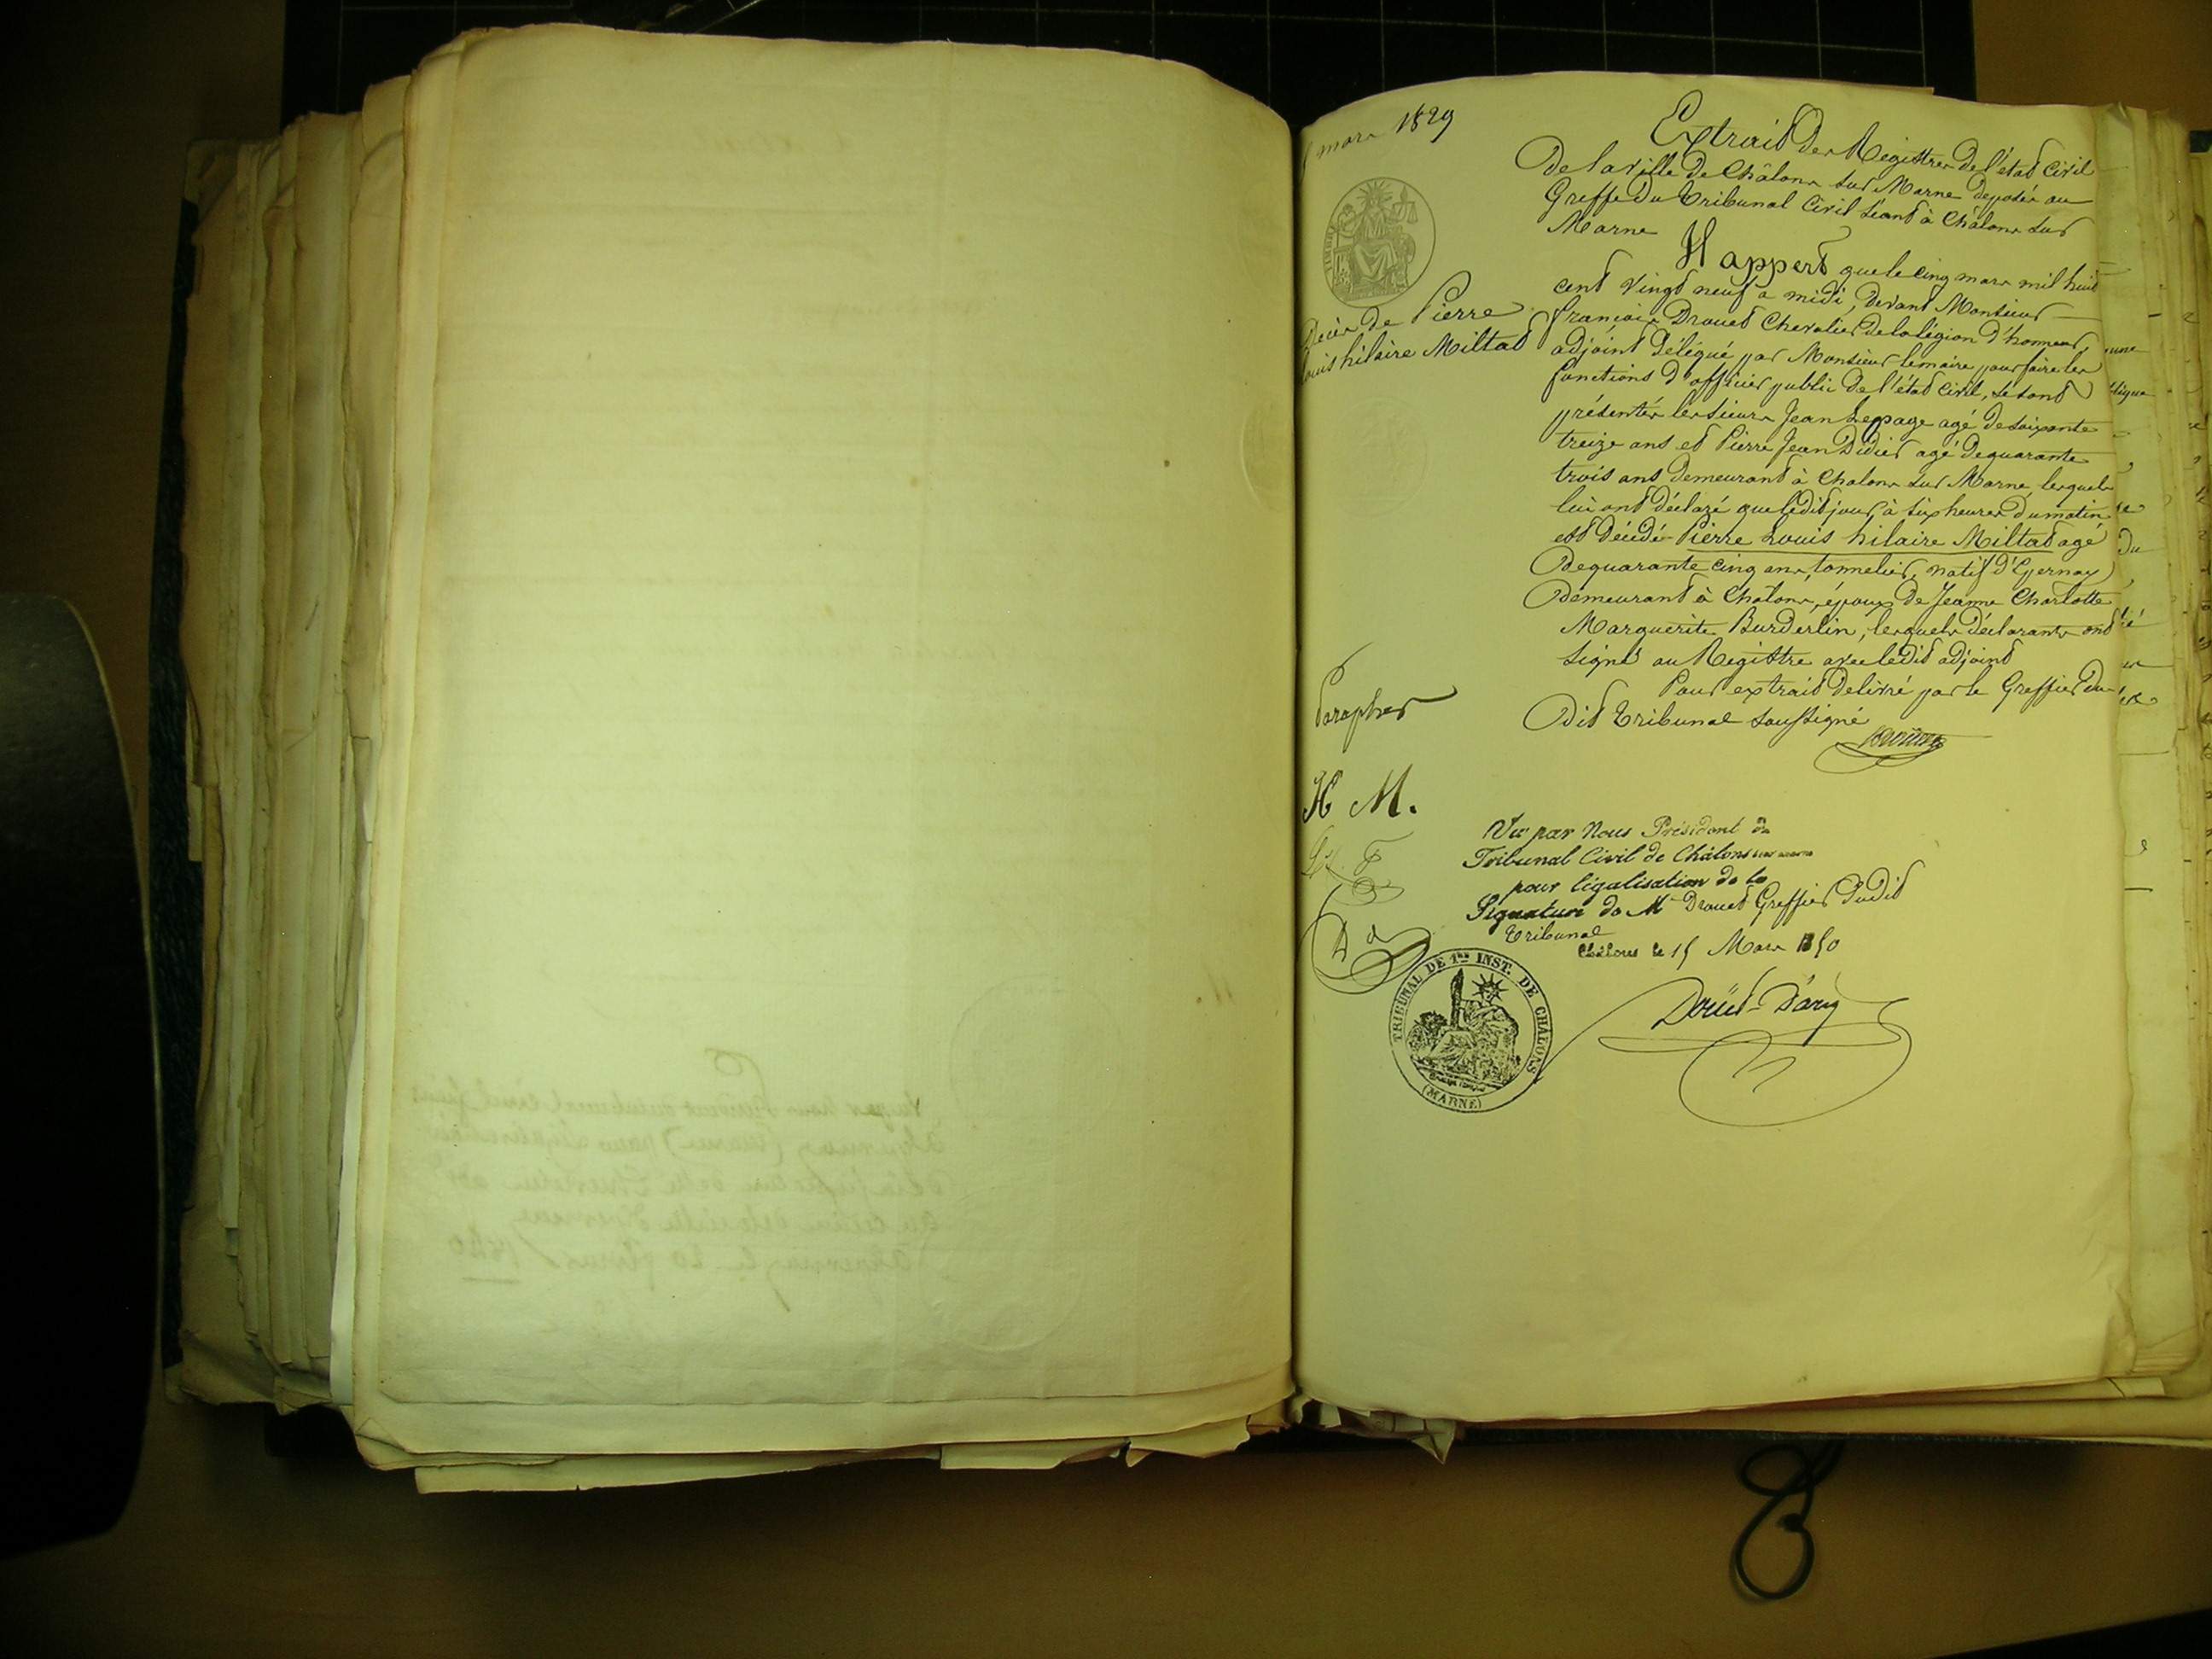 mars 1829
Extrait des Registres de l'état Civil
De la ville de Châlons sur Marne déposés au
Greffe du Tribunal Civil séant à Châlons sur
Marne
Il appert que le cinq mars mil huit
cent vingt neuf à midi, devant Monsieur
françois Drouet Chevalier de la légion d'honneur,
adjoint délégué par Monsieur le maire pour faire les
fonctions d'officier public de l'état civil, se sont
présentés les sieurs Jean Lepage agé de soixante
treize ans et Pierre Jean Didier agé de quarante
trois ans demeurant à Chalons sur Marne, lesquels
lui ont déclaré que ledit jour à six heures du matin
est décédé Pierre Louis hilaire Miltat agé
de quarante cinq ans, tonnelier, natif d'Epernay
demeurant à Châlons, époux de Jeanne Charlotte
Marguerite Burderlin, lesquels déclarants ont
signé au Registre avec ledit adjoint
Pour extrait délivré par le Greffier du
dit Tribunal soussigné
Décès de Pierre
Louis hilaire Miltat
Parapher
H M.
Vu par Nous Président du
Tribunal Civil de Châlons sur marne
pour légalisation de la
Signature de Mr Drouet Greffier dudit
Tribunal
Châlons le 15 Mars 1850
TRIBUNAL DE 1re INST. DE CHALONS
(MARNE)